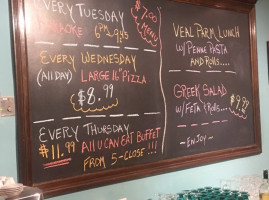 EVERY TUESDAY
6PM-9
$7.00
MENU
EVERY WEDNESDAY
(All DAY) LARGE 16" PIZZA
$8.99
EVERY THURSDAY
$11.99 All U CAN EAT BUFFET
FROM 5-CLOSE !!!
VEAL PARM LUNCH
W/ PENNE PASTA
AND ROLL....
GREEK SALAD
W/ FETA & ROLL... $9.99
~ENJOY~